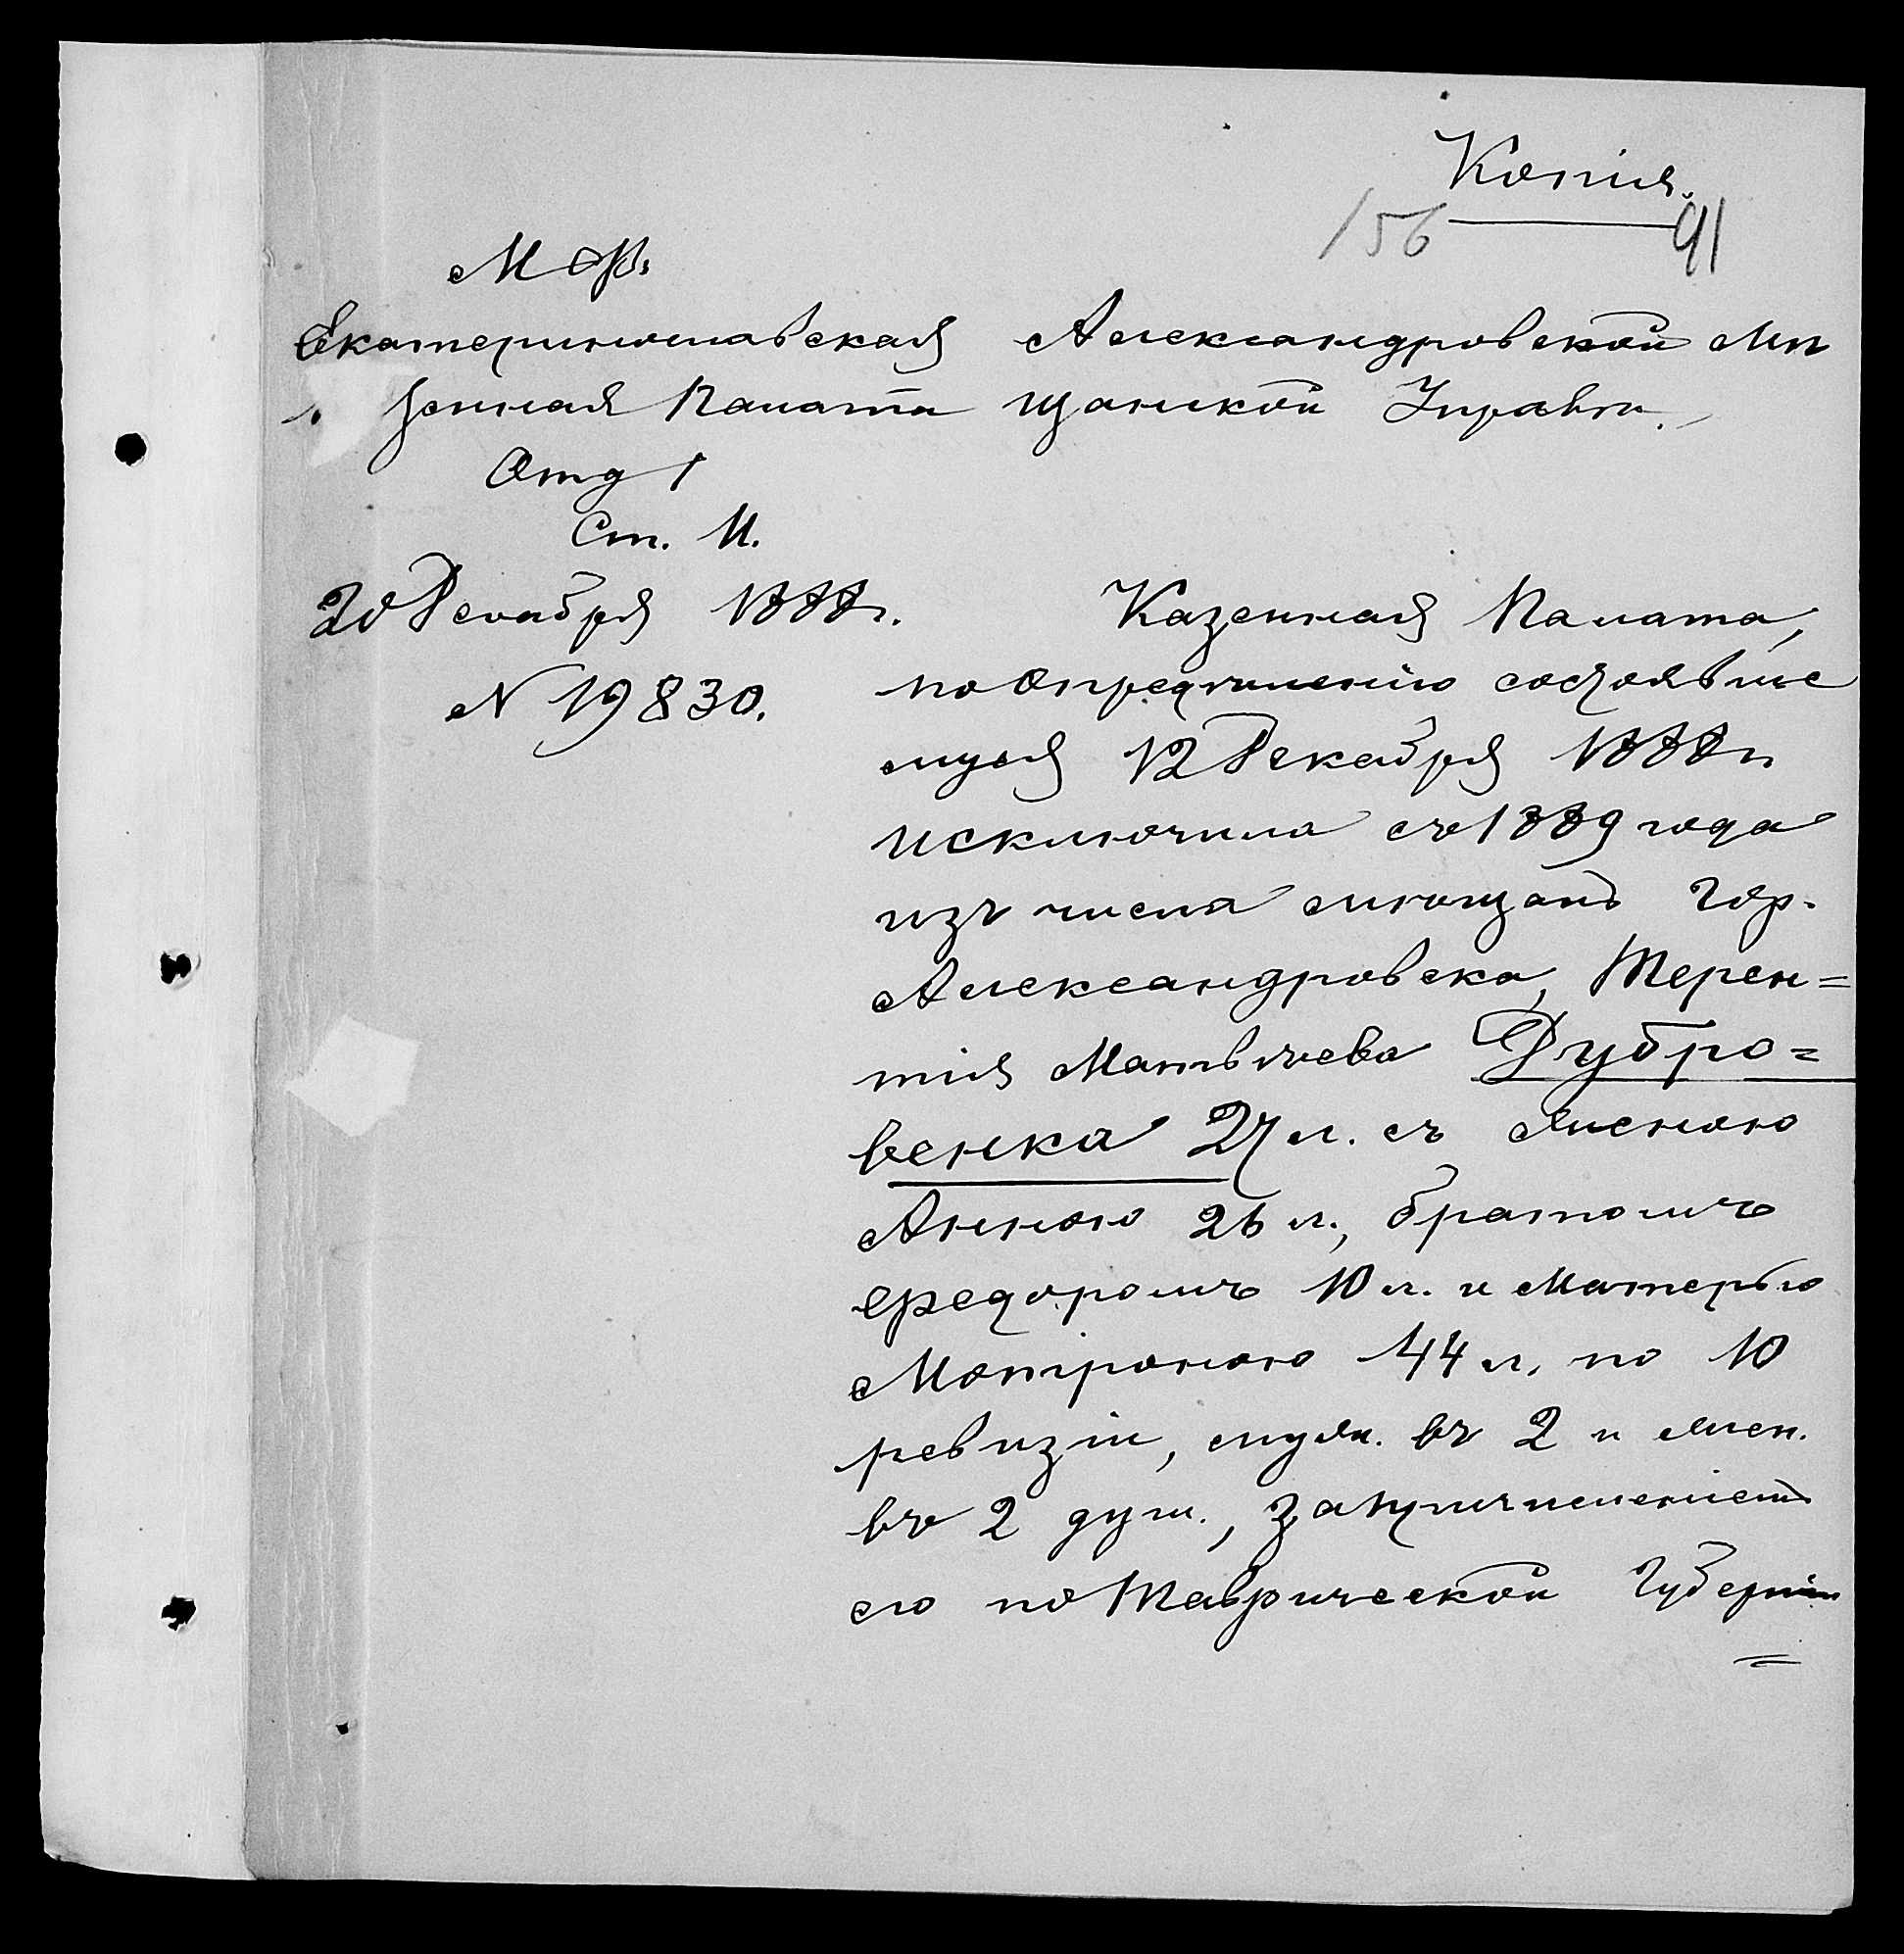 Копія.
156 91
М Ф.
Екатеринославская
зенная Палата
Отд 1
Ст. II.
20 Декабря 1888 г.
N 19830.
Александровской Мѣ
щанской Управѣ.
Казенная Палата,
по опредѣленію состоявше
муся 12 Декабря 1888 г
исключила съ 1889 года
изъ числа мѣщанъ гор.
Александровска, Терен=
тія Матвѣева Дубро=
венка 27 л. съ женою
Анною 26 л., братомъ
Федоромъ 10 л. и матерью
Мотроною 44 л. по 10
ревизіи, муж. въ 2 и жен.
въ 2 душ., за причисленіемъ
его по Таврической губерніи
=